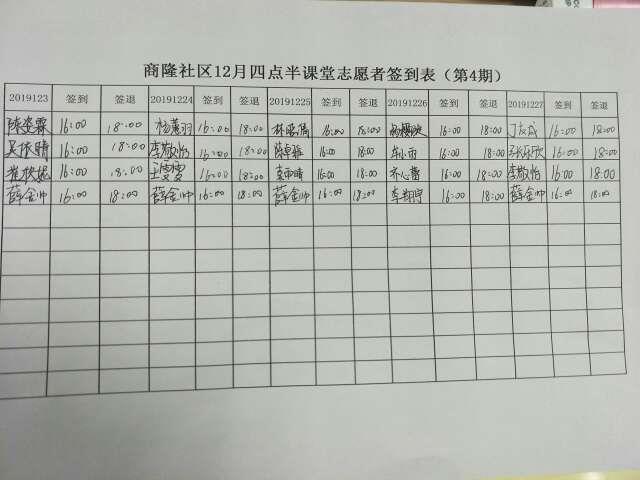 商隆社区12月四点半课堂志愿者签到表（第4期）
2019123 签到 签退 20191224 签到 签退 20191225 签到 签退 20191226 签到 签退 20191227 签到 签退
16:00 18:00 16:00 18:00 16:00 18:00 16:00 18:00 16:00 18:00
吴依晴 16:00 18:00 李敬怡 16:00 18:00 16:00 18:00 车小雨 16:00 18:00 16:00 18:00
16:00 18:00 王雯雯 16:00 18:00 16:00 18:00 齐心蕾 16:00 18:00 李敬怡 16:00 18:00
薛金帅 16:00 18:00 薛金帅 16:00 18:00 薛金帅 16:00 18:00 16:00 18:00 薛金帅 16:00 18:00